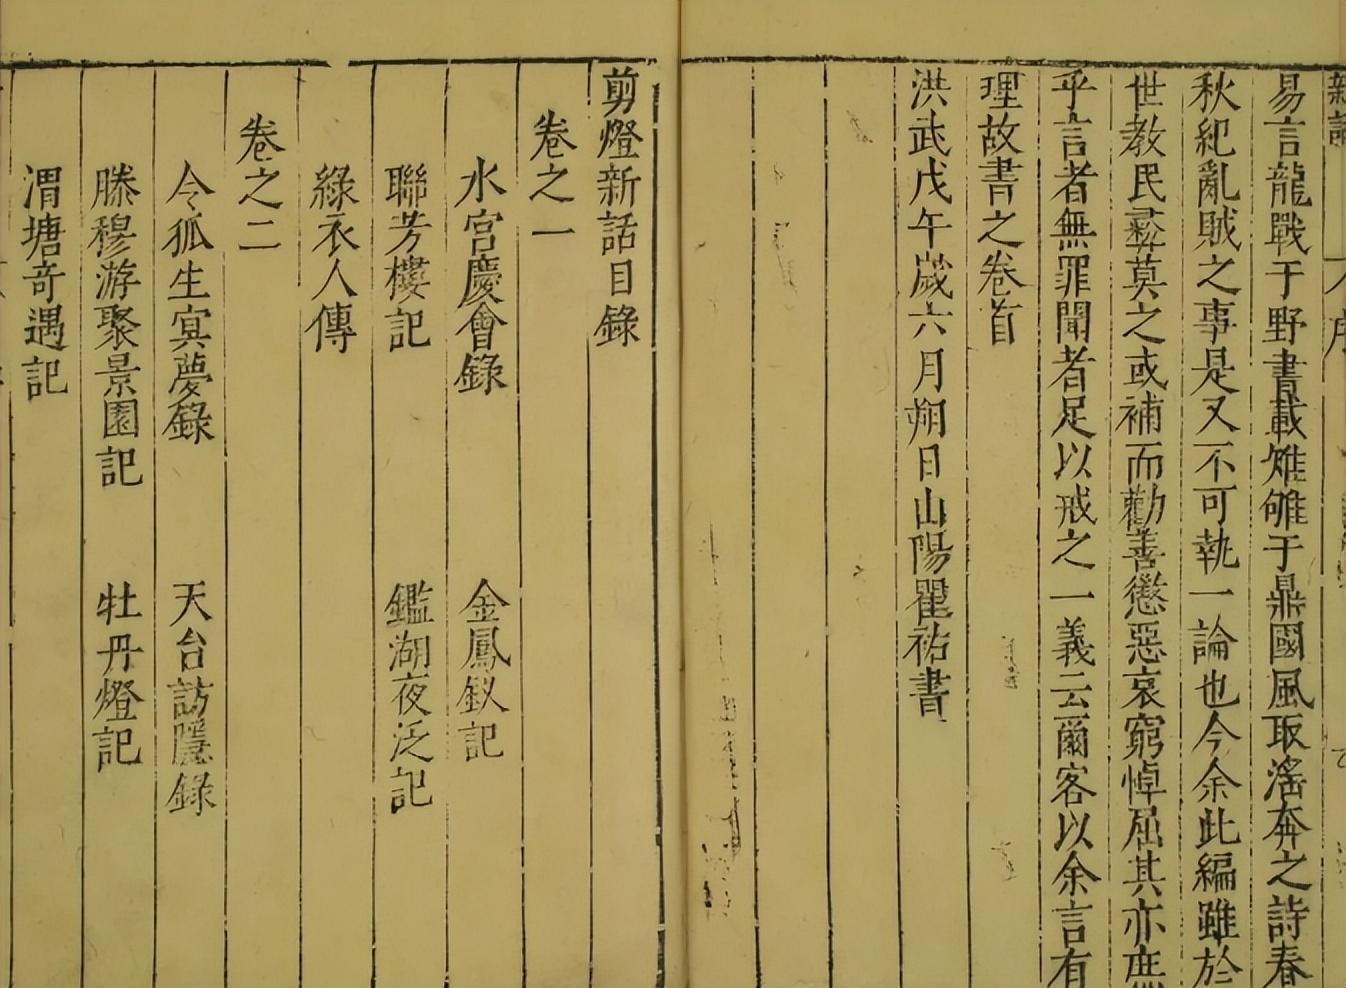 易言龍戰于野書載雉雊于鼎國風取滛奔之詩春
秋紀亂賊之事是又不可執一論也今余此編雖於
世教民彛莫之或補而勸善懲惡哀窮悼屈其亦庶
乎言者無罪聞者足以戒之一義云爾客以余言有
理故書之卷首
洪武戊午歲六月朔日山陽瞿祐書
剪燈新話目錄
卷之一
水宮慶會錄 金鳳釵記
聯芳樓記 鑑湖夜泛記
綠衣人傳
卷之二
令狐生冥夢錄 天台訪隱錄
滕穆游聚景園記 牡丹燈記
渭塘奇遇記